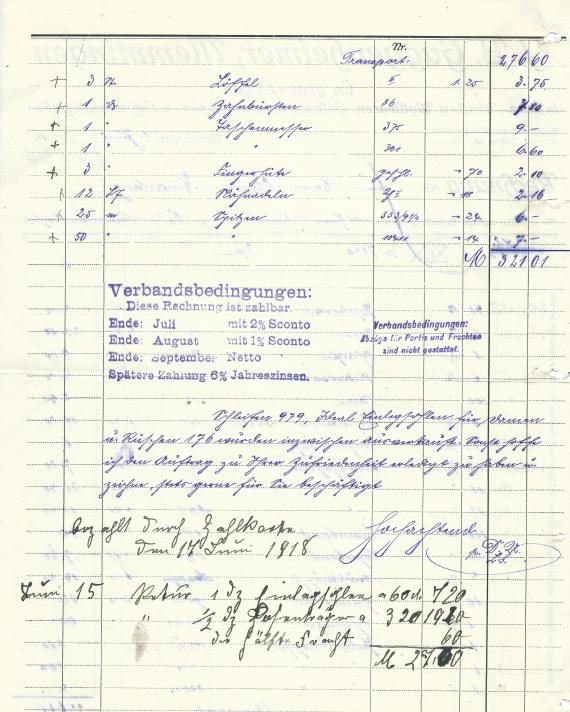 Nr.
Transport. 276 60
+ 3 St. Löffel 5 1.25 3.75
+ 1 dz Zahnbürsten 86 7.80
+ 1 " Taschenmesser 375 9.-
+ 1 " " 301 6.60
+ 3 " Fingerhüte - 70 2.10
+ 12 Nähnadeln - 18 2.16
+ 25 m Spitzen - 24 6.-
+ 50 " " - 14 7.-
M 321 01
Verbandsbedingungen:
Diese Rechnung ist zahlbar
Ende: Juli mit 2% Sconto
Ende: August mit 1% Sconto
Ende: September Netto
Spätere Zahlung 6% Jahreszinsen.
Verbandsbedingungen:
Abzüge für Portis und Frachten
sind nicht gestattet.
Schleifen 979, Ideal Einlegsohlen für Damen
u. Rüschen 176 wurden inzwischen ausverkauft. Sonst hoffe
ich den Auftrag zu Ihrer Zufriedenheit erledigt zu haben u.
zeichne, stets gerne für Sie beschäftigt
Hochachtend
bezahlt durch Zahlkarte
den 14 Juni 1918
Juni 15 Retur 1 dz Einlagsohlen a 60 d. 7 20
" 1/2 dz Hosenträger a 3 20 19 20
die Hälfte Fracht 60
M. 27.00